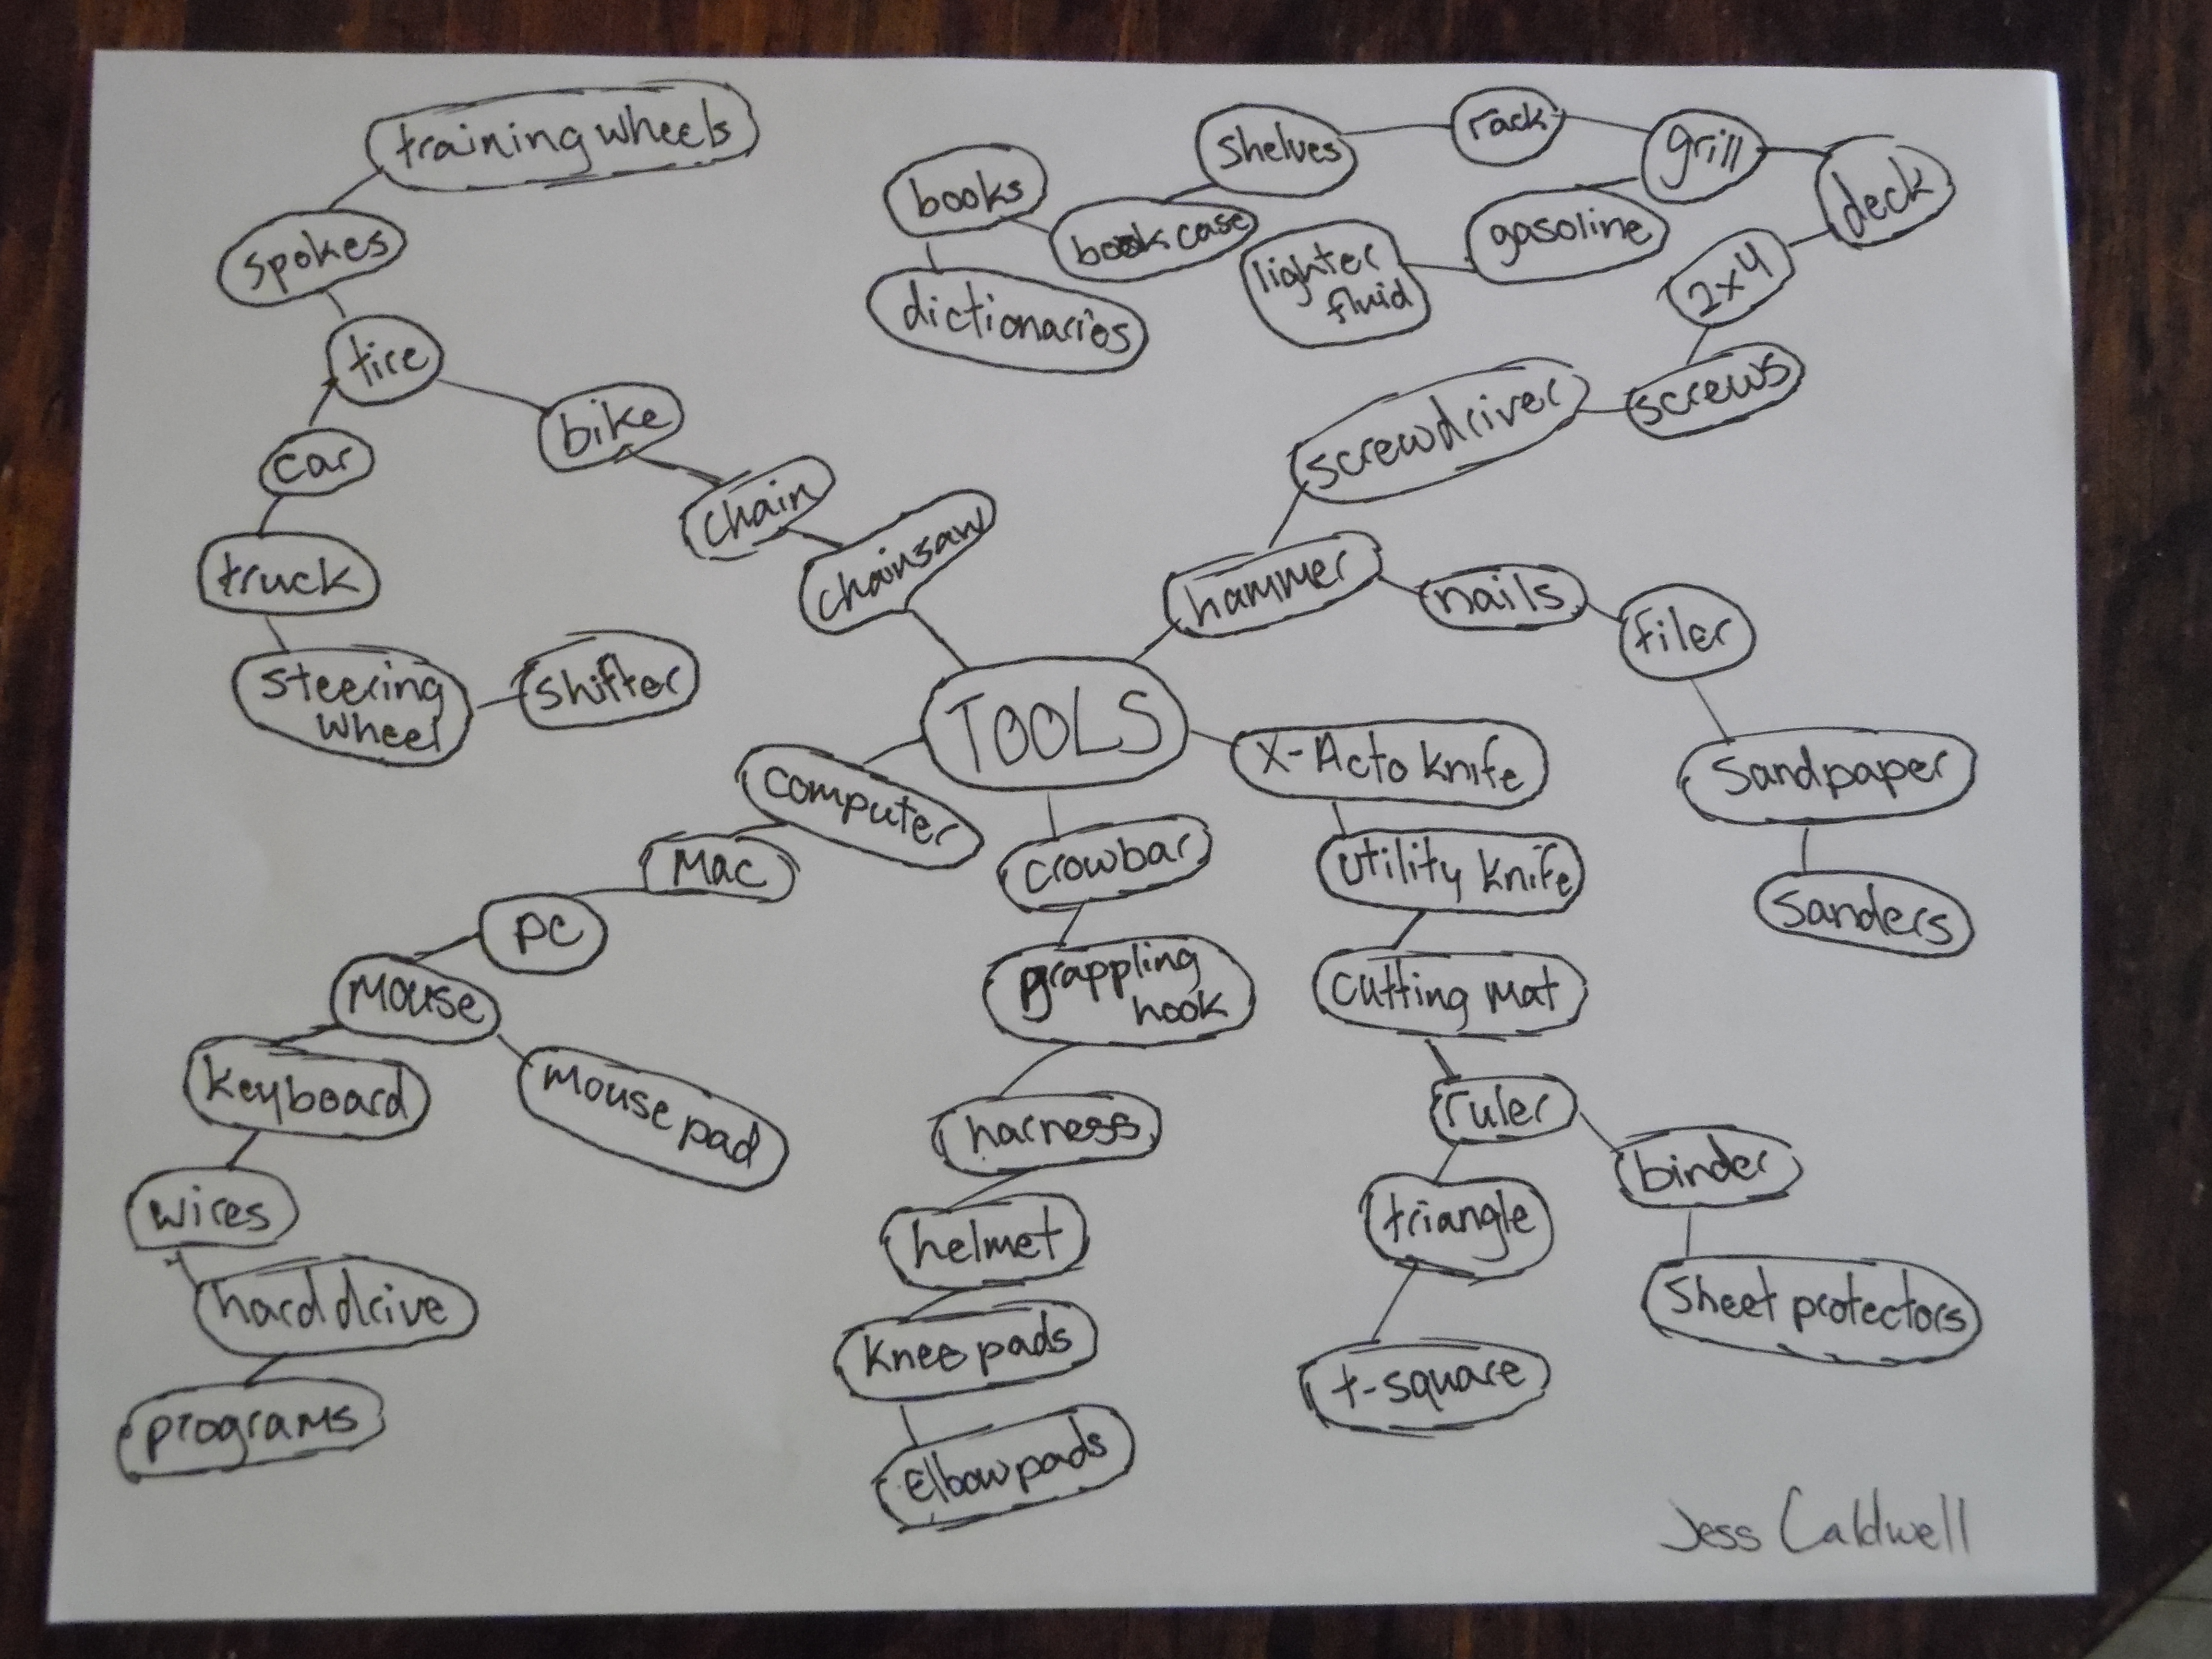 training wheels
spokes
tire
car
truck
steering
wheel
shifter
bike
chain
chainsaw
books
bookcase
dictionaries
shelves
rack
grill
deck
gasoline
lighter
fluid
2x4
screws
screwdriver
hammer
nails
filer
Sandpaper
Sanders
TOOLS
X-Acto knife
utility knife
cutting mat
ruler
triangle
t-square
binder
Sheet protectors
crowbar
grappling
hook
harness
helmet
knee pads
Elbow pads
computer
Mac
PC
Mouse
Mouse pad
keyboard
wires
hard drive
programs
Jess Caldwell